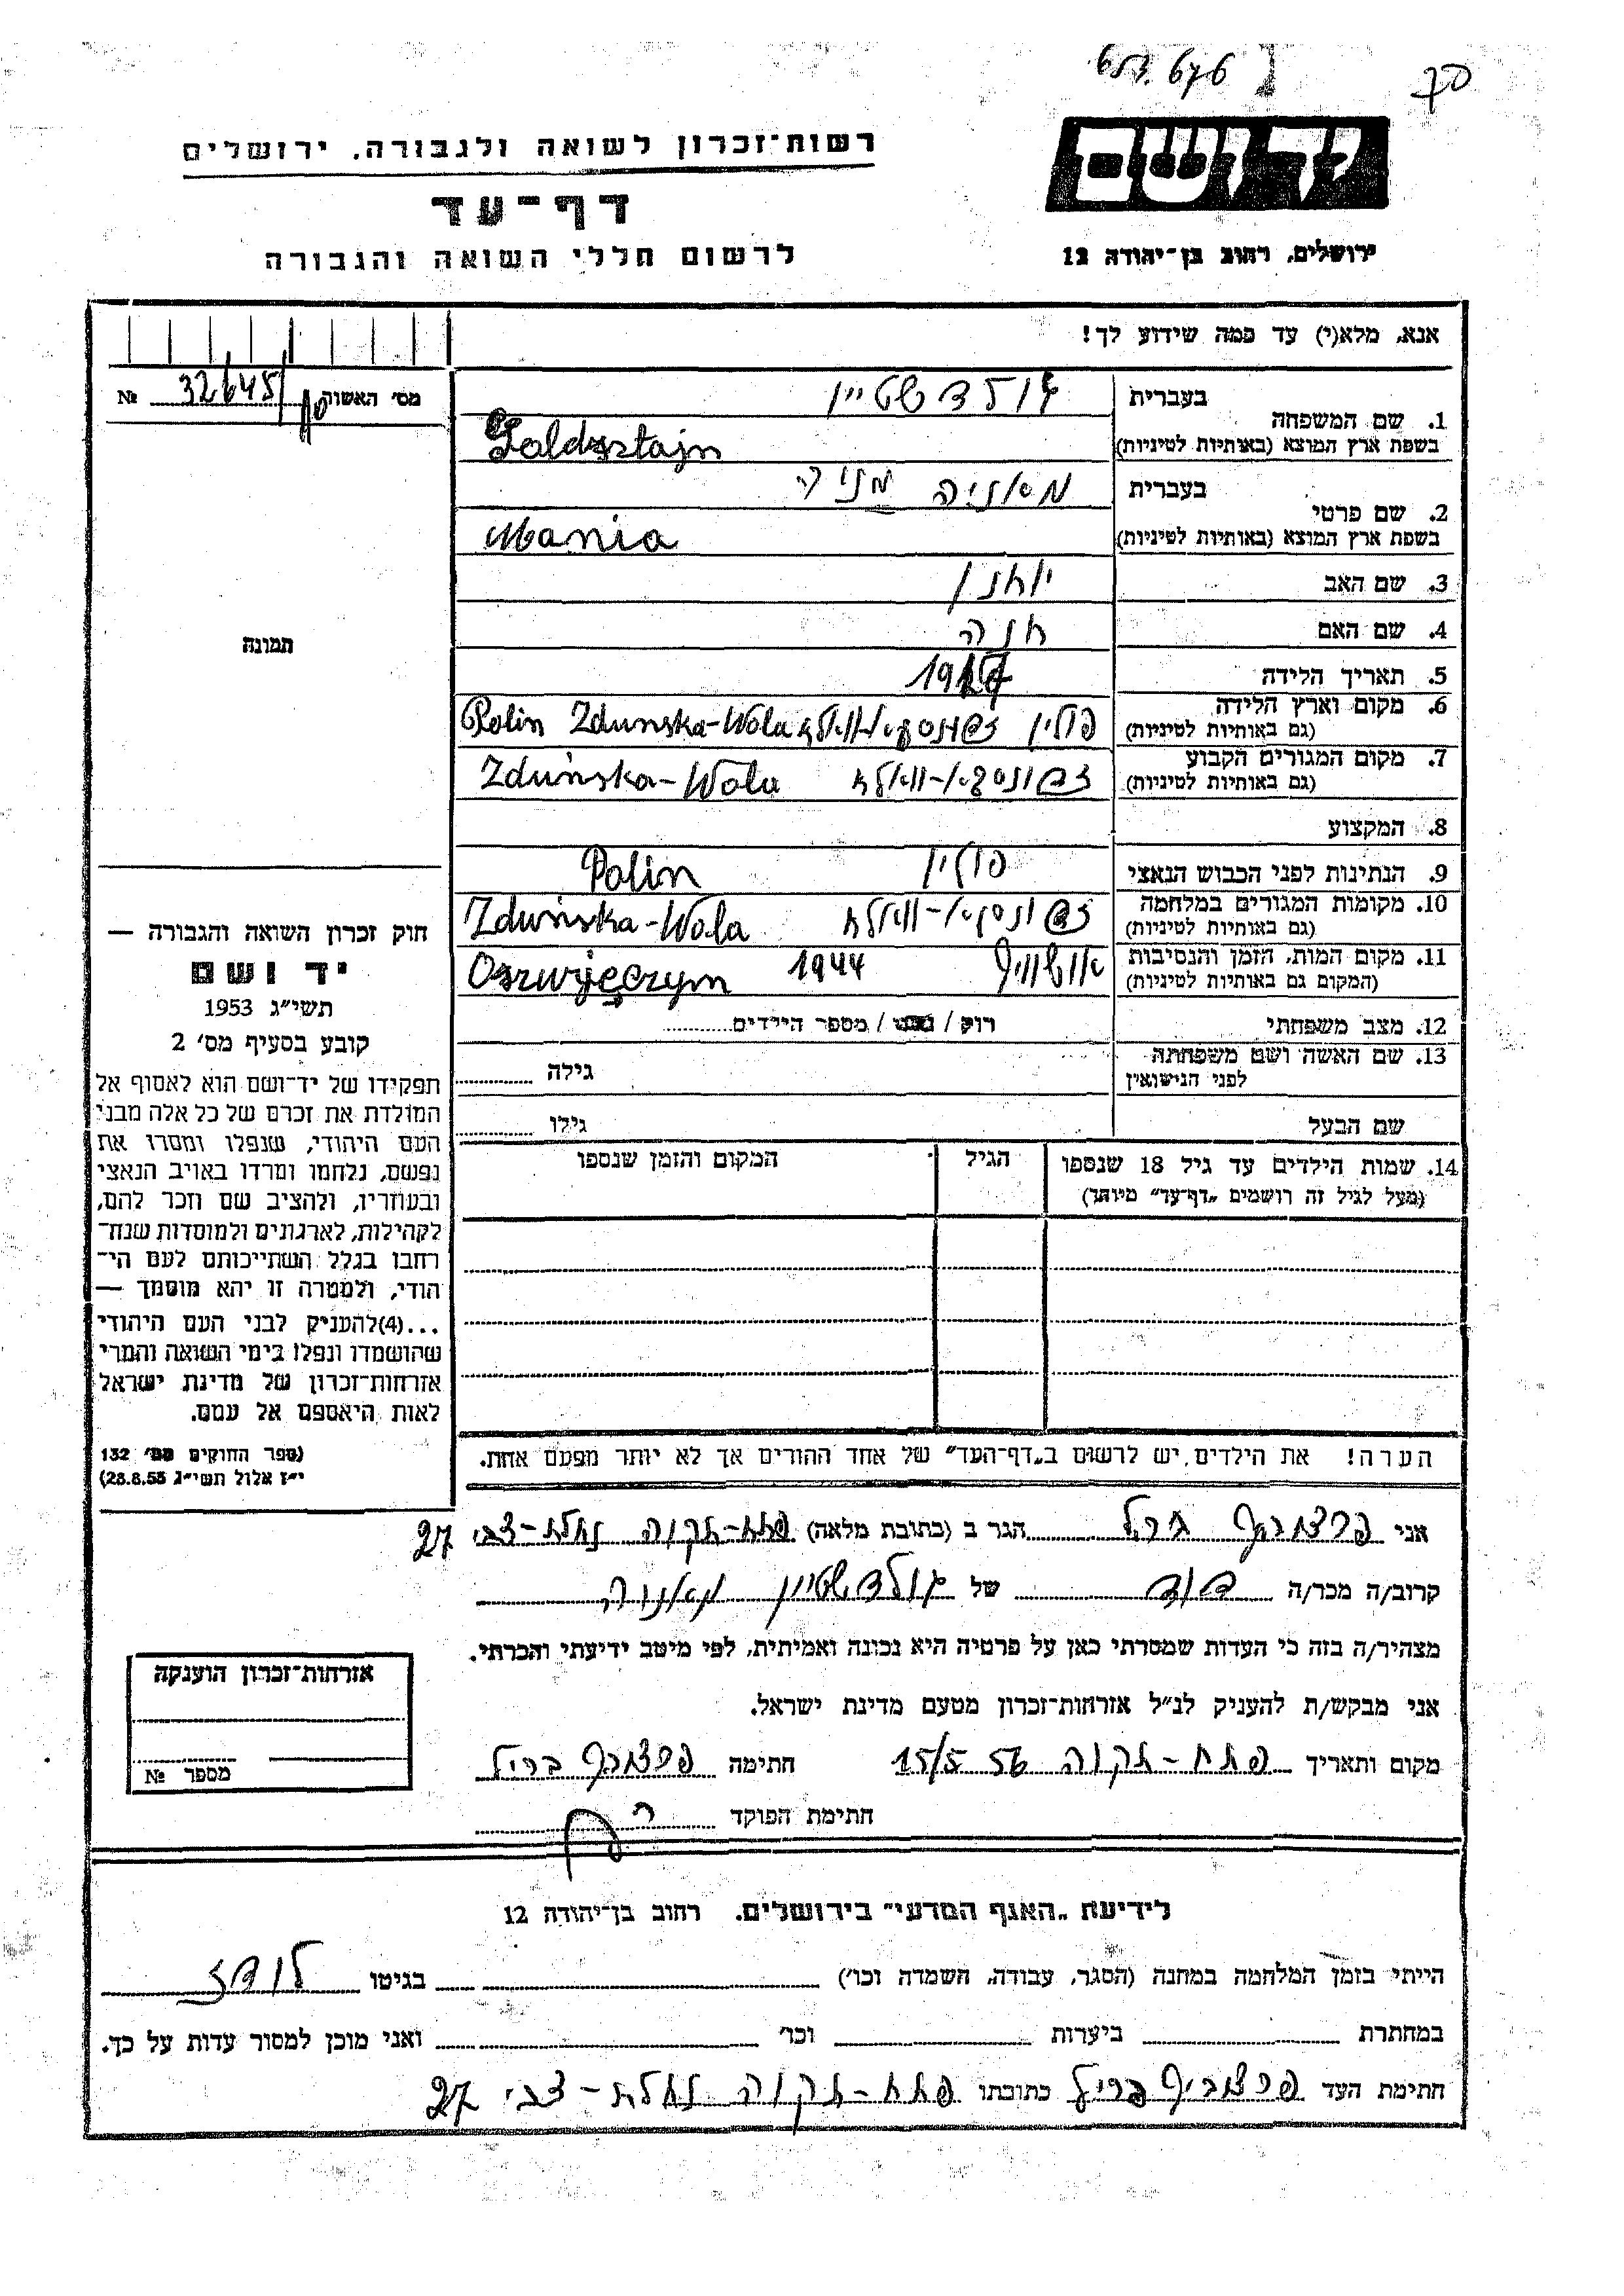 653.676
יד ושם
רשות־זכרון לשואה ולגבורה, ירושלים
דף־עד
לרשום חללי השואה והגבורה
ירושלים, רחוב בן־יהודה 12
אנא, מלא(י) עד כמה שידוע לך!
מס׳ האשוה 32645 №
בעברית גולדשטיין
1. שם המשפחה
בשפת ארץ המוצא (באותיות לטיניות) Goldsztajn
בעברית מאניה מניה
2. שם פרטי
בשפת ארץ המוצא (באותיות לטיניות) Mania
3. שם האב יוחנן
4. שם האם חנה
5. תאריך הלידה
6. מקום וארץ הלידה פולין זדונסקא-וואלא Polin Zduńska-Wola
(גם באותיות לטיניות)
7. מקום המגורים הקבוע זדונסקא-וואלא Zduńska-Wola
(גם באותיות לטיניות)
8. המקצוע
9. הנתינות לפני הכבוש הנאצי פולין Polin
10. מקומות המגורים במלחמה זדונסקא-וואלא Zduńska-Wola
(גם באותיות לטיניות)
11. מקום המות, הזמן והנסיבות אושוויץ 1944 Oszwyęczym
(המקום גם באותיות לטיניות)
12. מצב משפחתי רוק / נשוי / מספר הילדים
13. שם האשה ושם משפחתה גילה
לפני הנישואין
שם הבעל גילו
14. שמות הילדים עד גיל 18 שנספו הגיל המקום והזמן שנספו
(מעל לגיל זה רושמים „דף־עד״ מיוחד)
הערה! את הילדים, יש לרשום ב„דף־העד״ של אחד ההורים אך לא יותר מפעם אחת.
תמונה
חוק זכרון השואה והגבורה —
יד ושם
תשי״ג 1953
קובע בסעיף מס׳ 2
תפקידו של יד־ושם הוא לאסוף אל
המולדת את זכרם של כל אלה מבני
העם היהודי, שנפלו ומסרו את
נפשם, נלחמו ומרדו באויב הנאצי
ובעוזריו, ולהציב שם וזכר להם,
לקהילות, לארגונים ולמוסדות שנח־
רחבו בגלל השתייכותם לעם הי־
הודי, ולמטרה זו יהא מוסמך —
...(4)להעניק לבני העם היהודי
שהושמדו ונפלו בימי השואה והמרי
אזרחות־זכרון של מדינת ישראל
לאות היאספם אל עמם.
(ספר החוקים מס׳ 132
י״ז אלול תשי״ג 28.8.53)
אני בריל הגר ב (כתובת מלאה) פתח-תקוה נחלת-צבי 27
קרוב/ה מכר/ה דוד של גולדשטיין מאניה
מצהיר/ה בזה כי העדות שמסרתי כאן על פרטיה היא נכונה ואמיתית, לפי מיטב ידיעתי והכרתי.
אני מבקש/ת להעניק לנ״ל אזרחות־זכרון מטעם מדינת ישראל.
מקום ותאריך פתח-תקוה 15/5 56 חתימה בריל
חתימת הפוקד
אזרחות־זכרון הוענקה
מספר №
לידיעת „האגף המדעי״ בירושלים, רחוב בן־יהודה 12
הייתי בזמן המלחמה במחנה (הסגר, עבודה, השמדה וכו׳) בגיטו לודז
במחתרת ביערות וכו׳ ואני מוכן למסור עדות על כך.
חתימת העד בריל כתובתו פתח-תקוה נחלת-צבי 27